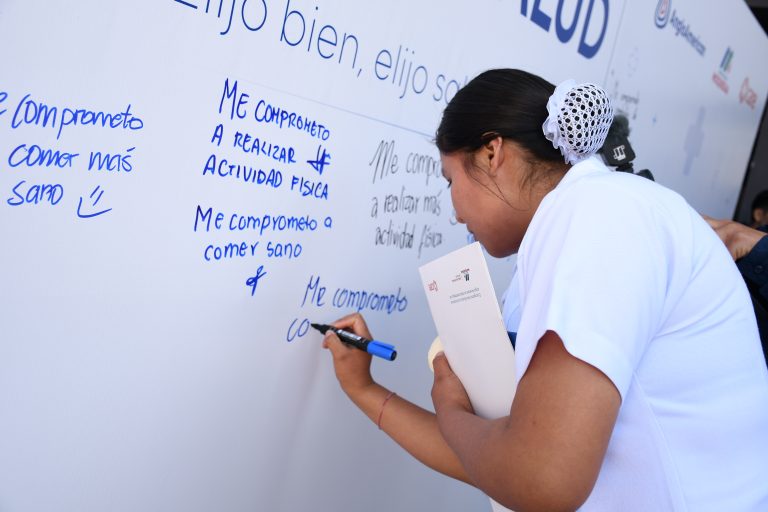 SALUD
Elijo bien, elijo
AngloAmerican
Me comprometo
comer más
sano
ME COMPROMETO
A REALIZAR
ACTIVIDAD FISICA
Me comprometo a
comer sano
Me compro
a realizar más
actividad física
Me comprometo
co
care